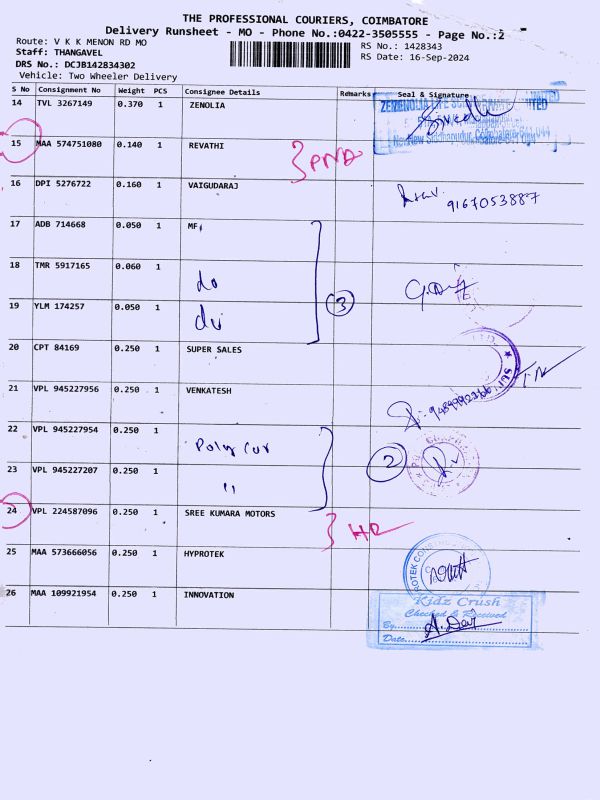 THE PROFESSIONAL COURIERS, COIMBATORE
Delivery Runsheet - MO - Phone No.:0422-3505555 - Page No.:2
Route: V K K MENON RD MO
RS No.: 1428343
Staff: THANGAVEL
RS Date: 16-Sep-2024
DRS No.: DCJB142834302
Vehicle: Two Wheeler Delivery
S No Consignment No Weight PCS Consignee Details Remarks Seal & Signature
14 TVL 3267149 0.370 1 ZENOLIA
15 MAA 574751080 0.140 1 REVATHI
PND
16 DPI 5276722 0.160 1 VAIGUDARAJ
9167053887
17 ADB 714668 0.050 1 MF
18 TMR 5917165 0.060 1 do
19 YLM 174257 0.050 1 do
3
20 CPT 84169 0.250 1 SUPER SALES
21 VPL 945227956 0.250 1 VENKATESH
22 VPL 945227954 0.250 1
23 VPL 945227207 0.250 1 "
2
24 VPL 224587096 0.250 1 SREE KUMARA MOTORS
25 MAA 573666056 0.250 1 HYPROTEK
26 MAA 109921954 0.250 1 INNOVATION
Kidz Crush
Checked & Received
By
Date